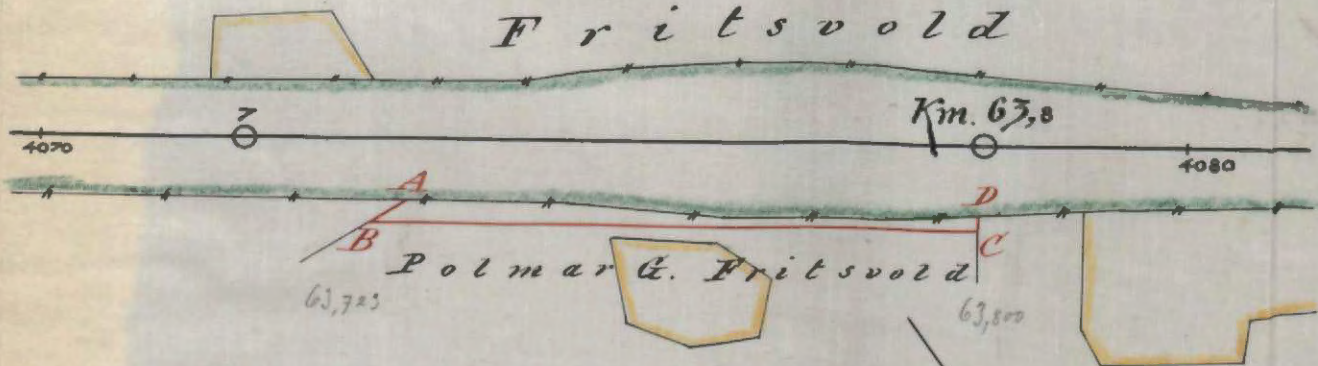 Fritsvold
7
Km. 63,8
4070
4080
A
D
B
C
Polmar G. Fritsvold
63,723
63,800